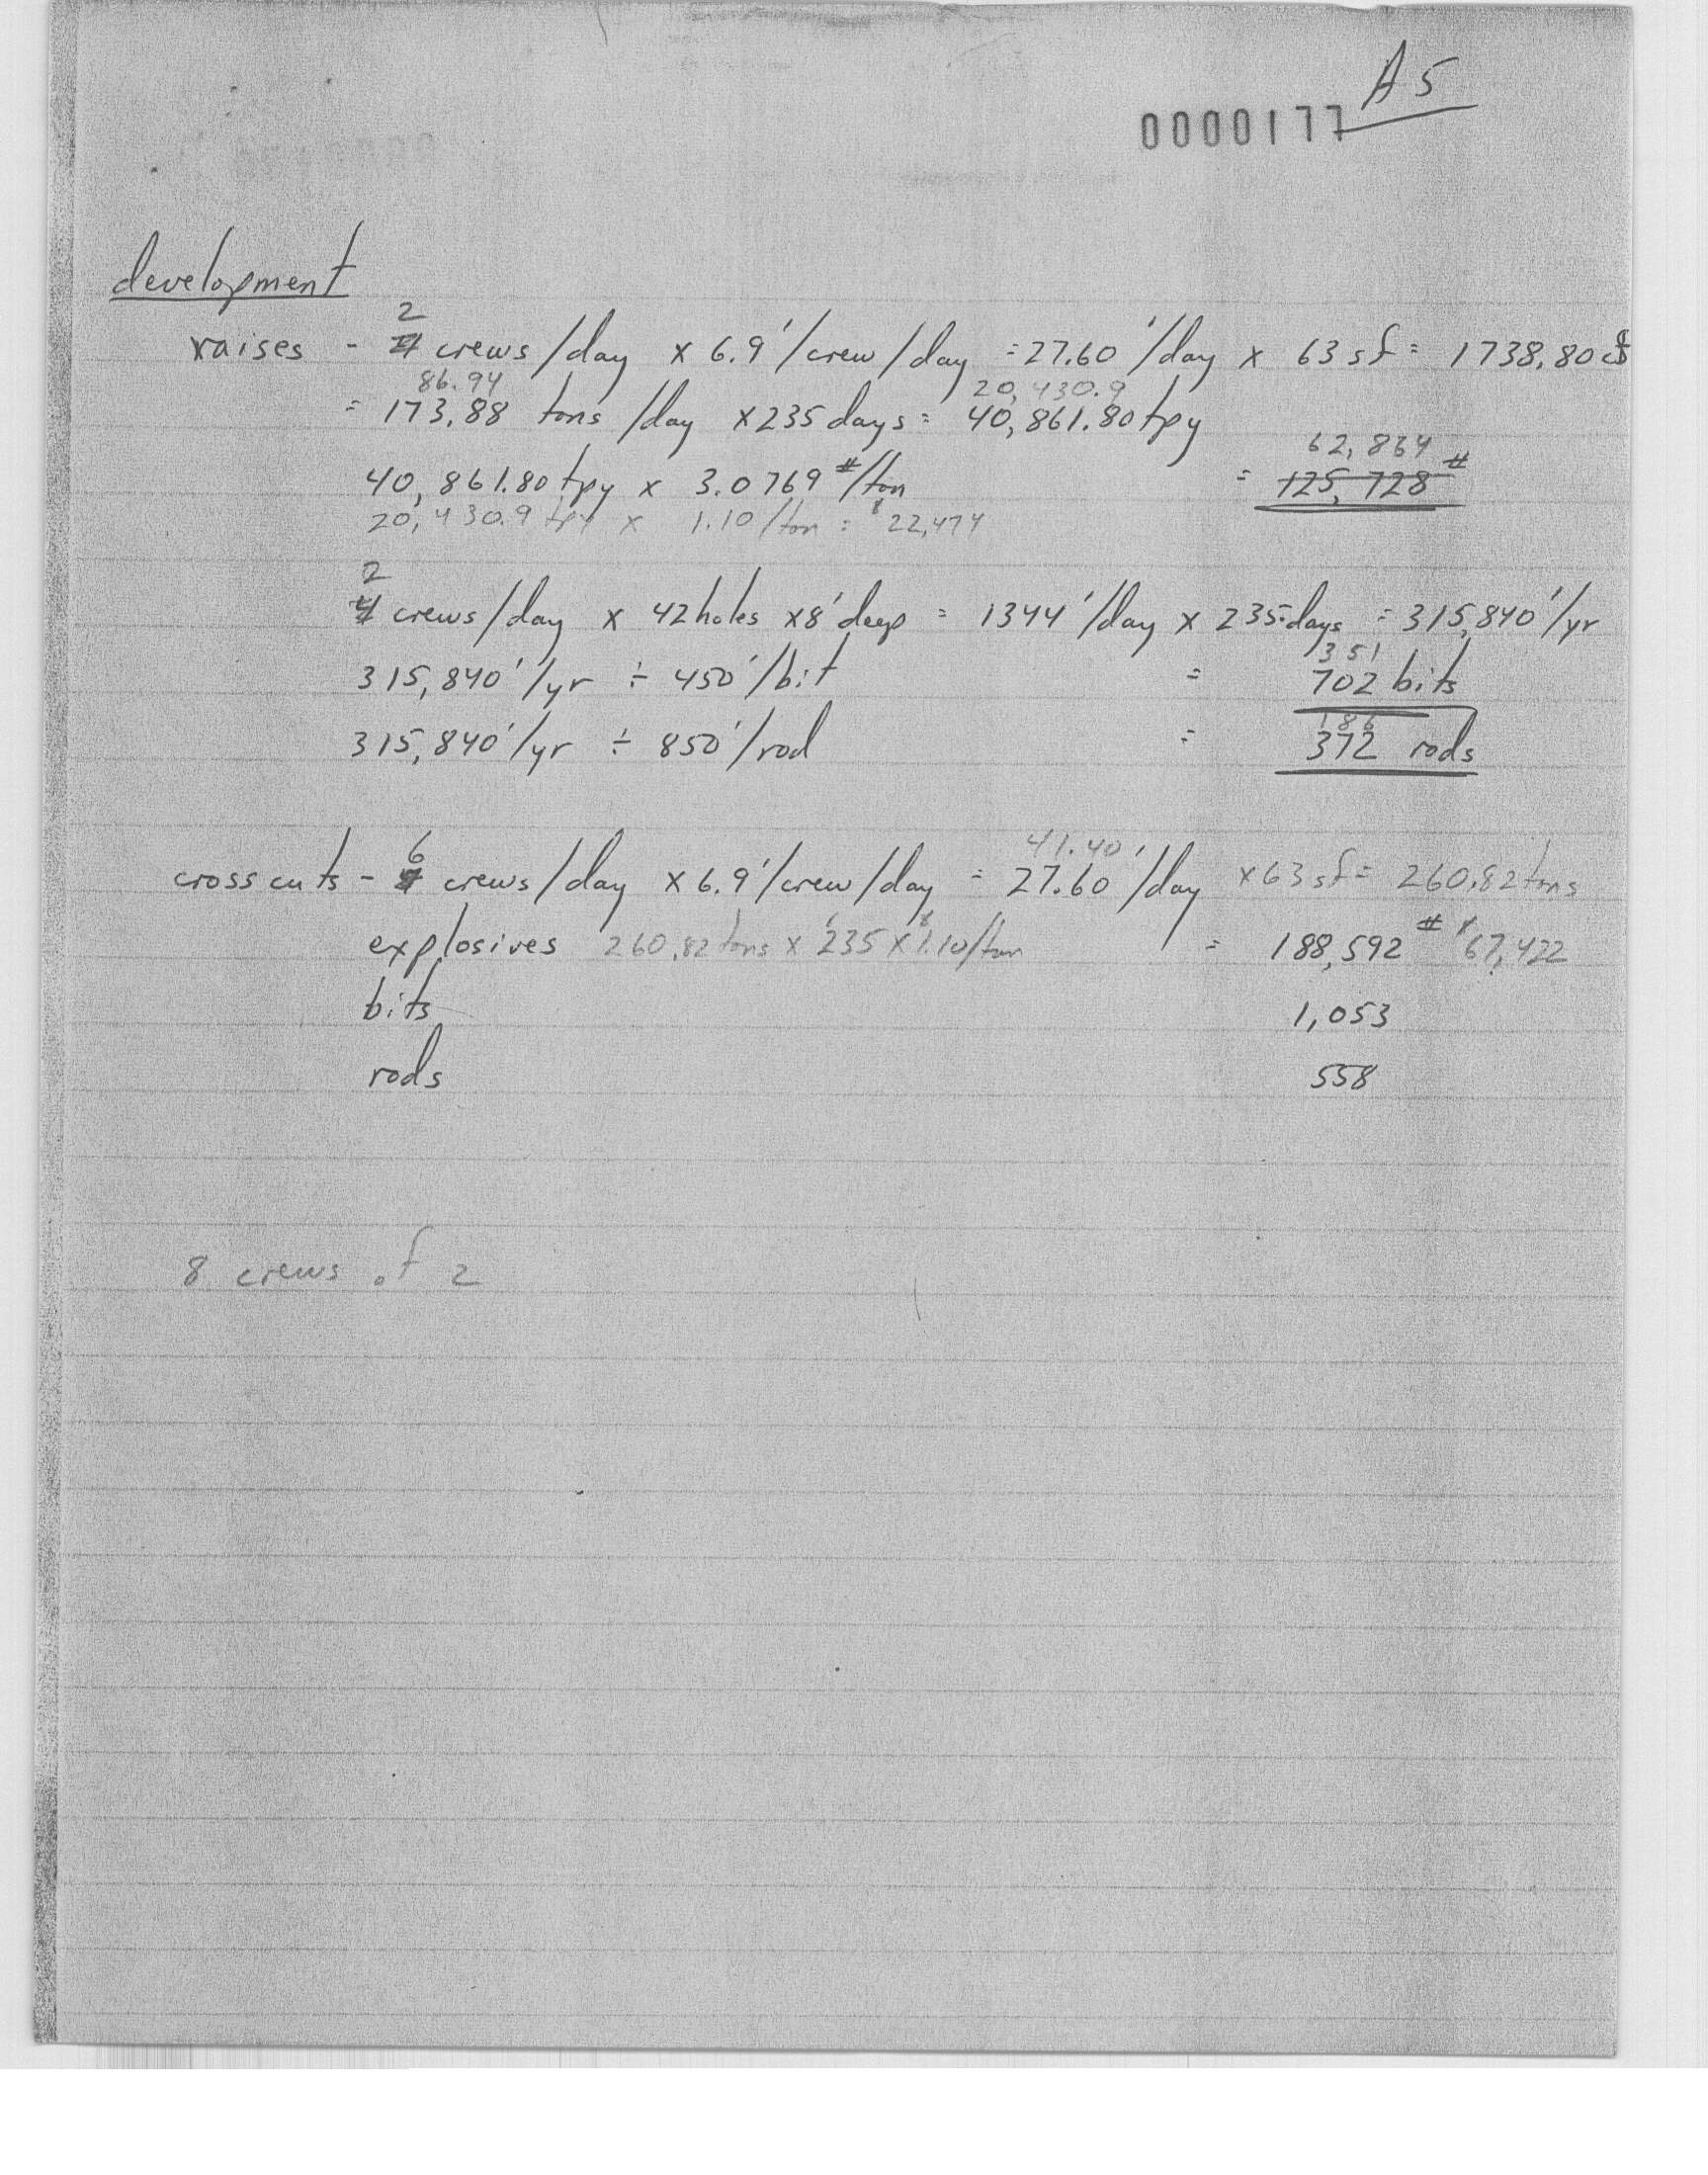 A5
0000177
development
2
raises - 4 crews/day x 6.9'/crew/day = 27.60'/day x 63 sf = 1738.80 cf
86.94 20,430.9
= 173.88 tons/day x 235 days = 40,861.80 tpy
62,864 #
40,861.80 tpy x 3.0769 #/ton = 125,728
20,430.9 tpy x 1.10/ton = $22,474
2
4 crews/day x 42 holes x 8' deep = 1344'/day x 235 days = 315,840'/yr
351
315,840'/yr ÷ 450'/bit = 702 bits
186
315,840'/yr ÷ 850'/rod = 372 rods
6 41.40'
cross cuts - 4 crews/day x 6.9'/crew/day = 27.60'/day x 63 sf = 260.82 tons
explosives 260.82 tons x 235 x $1.10/ton = 188,592 # $67,422
bits 1,053
rods 558
8 crews of 2